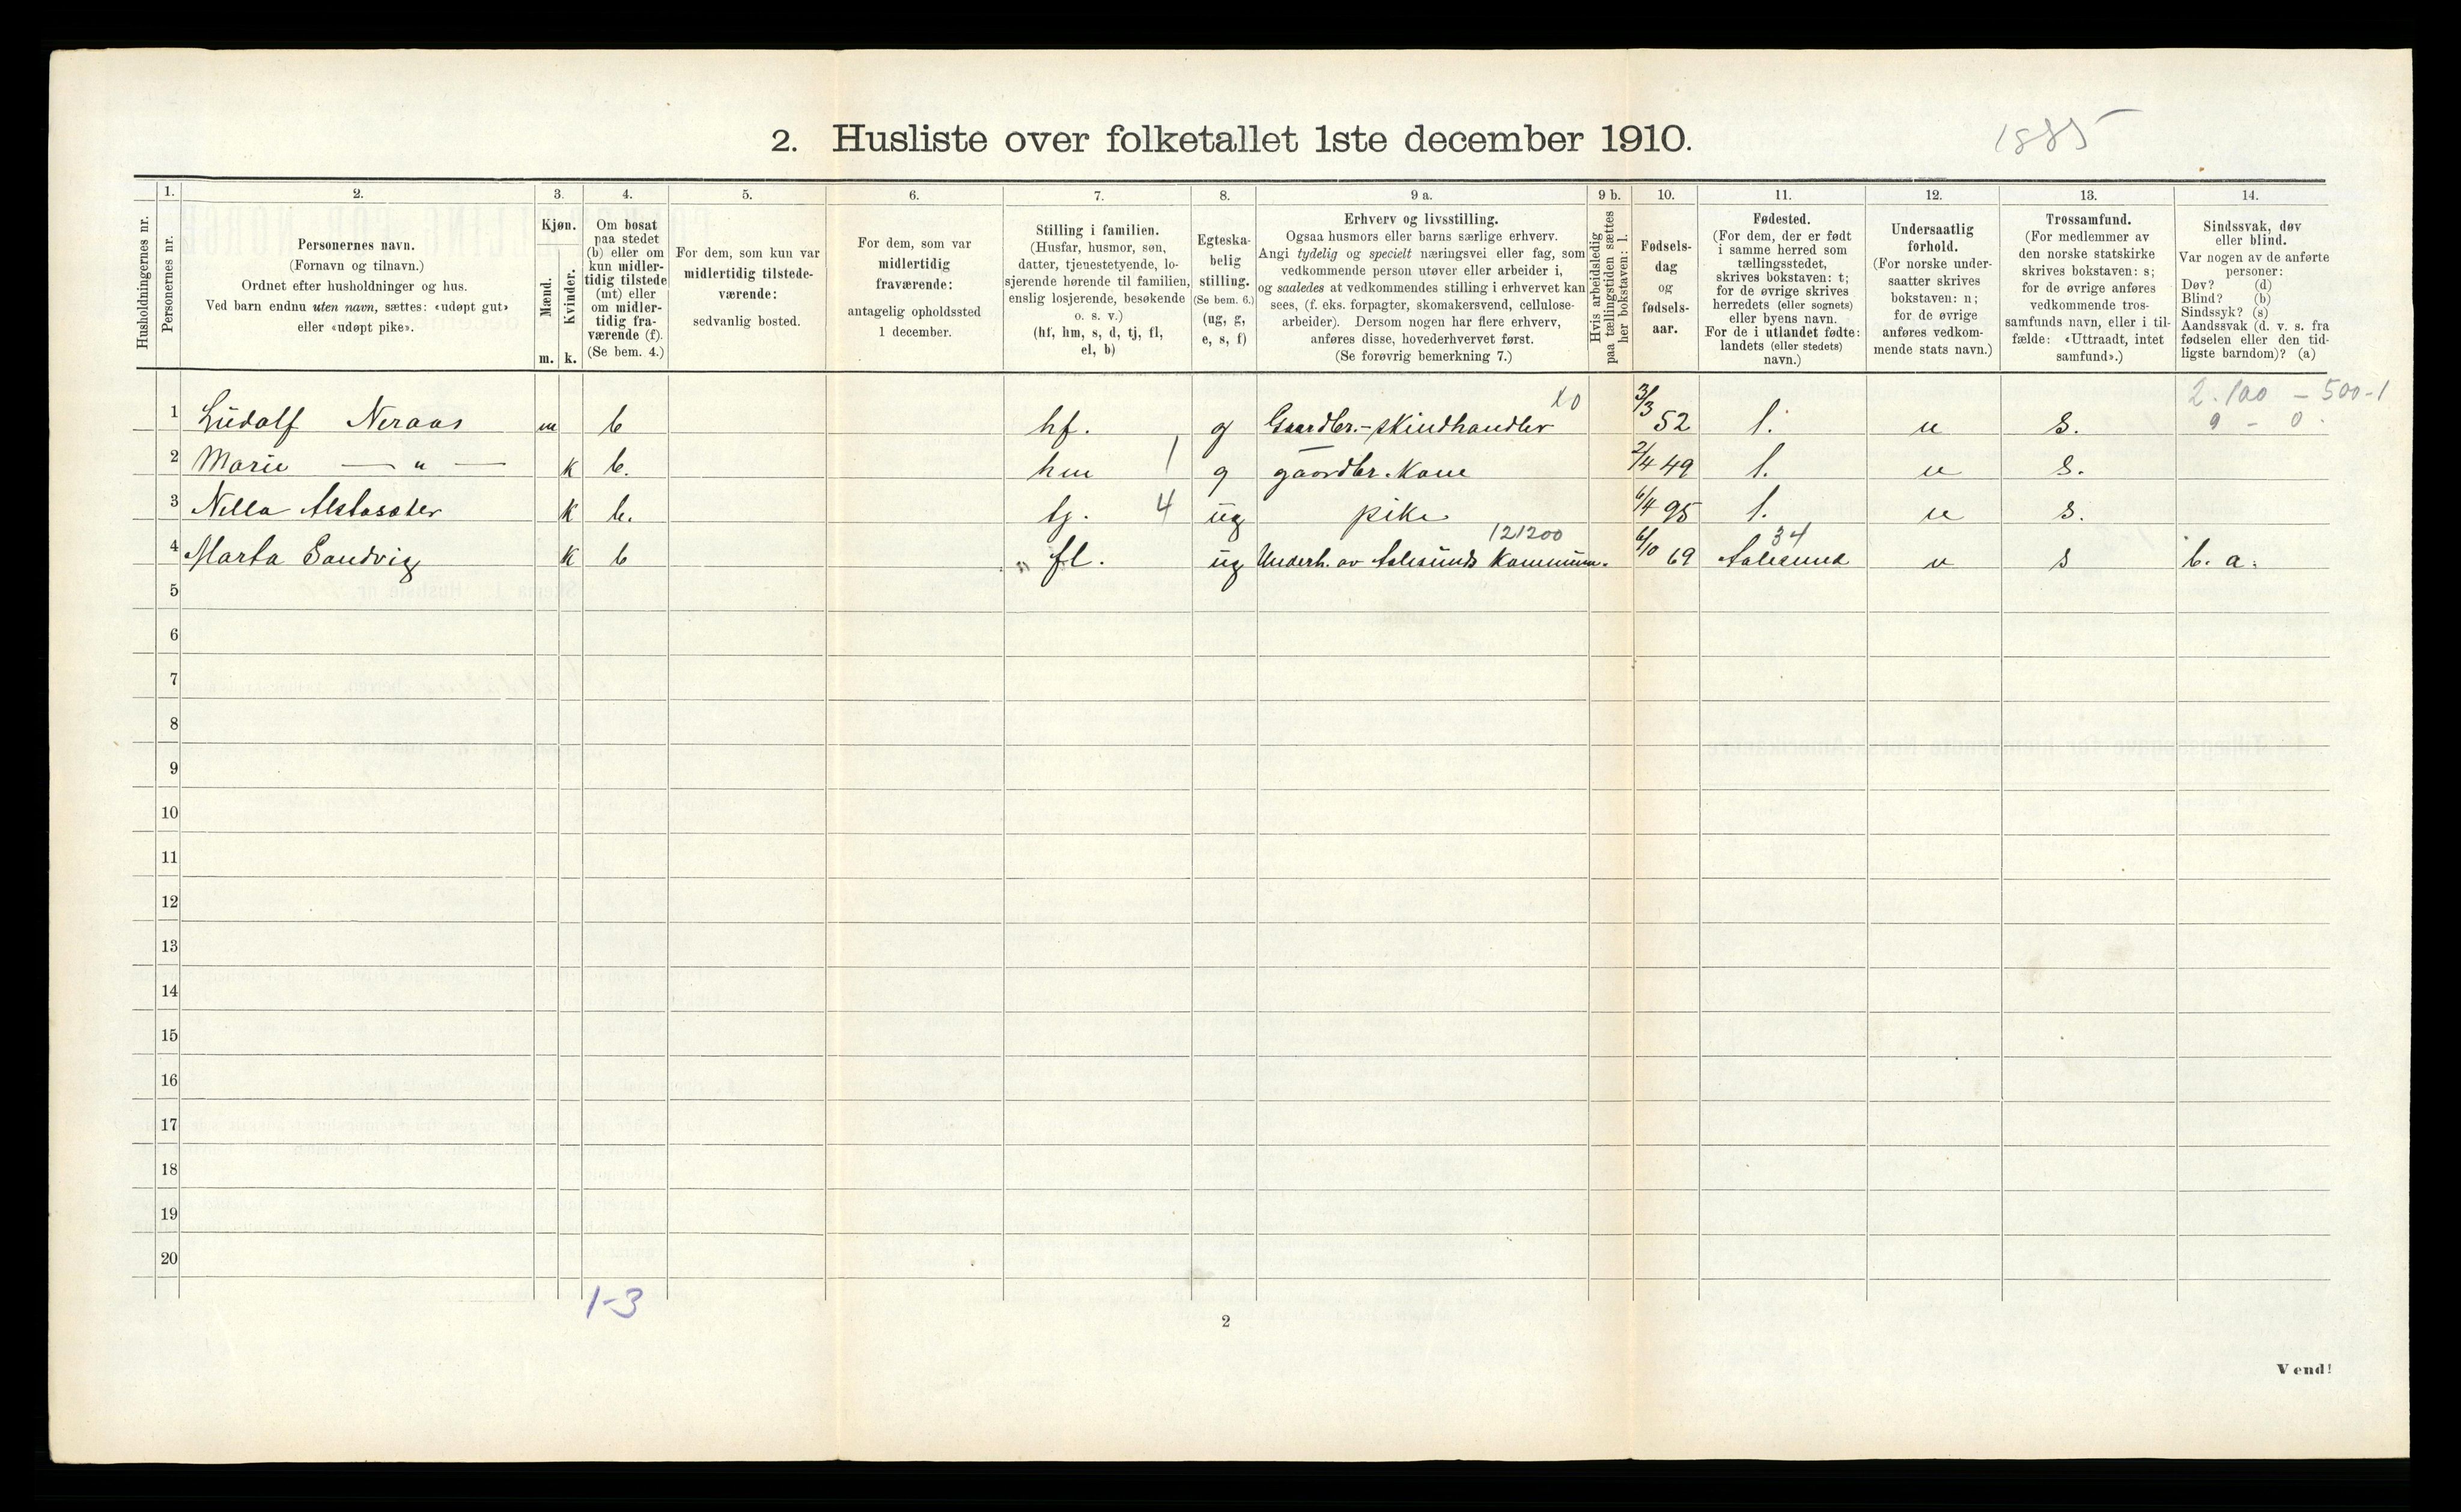 2. Husliste over folketallet 1ste december 1910.
1885
1. 2. 3. 4. 5. 6. 7. 8. 9 a. 9 b. 10. 11. 12. 13. 14.
Husholdningernes nr.
Personernes nr.
Personernes navn.
(Fornavn og tilnavn.)
Ordnet efter husholdninger og hus.
Ved barn endnu uten navn, sættes: «udøpt gut»
eller «udøpt pike».
Kjøn.
Mænd.
Kvinder.
m. k.
Om bosat
paa stedet
(b) eller om
kun midler-
tidig tilstede
(mt) eller
om midler-
tidig fra-
værende (f).
(Se bem. 4.)
For dem, som kun var
midlertidig tilstede-
værende:
sedvanlig bosted.
For dem, som var
midlertidig
fraværende:
antagelig opholdssted
1 december.
Stilling i familien.
(Husfar, husmor, søn,
datter, tjenestetyende, lo-
sjerende hørende til familien,
enslig losjerende, besøkende
o. s. v.)
(hf, hm, s, d, tj, fl,
el, b)
Egteska-
belig
stilling.
(Se bem. 6.)
(ug, g,
e, s, f)
Erhverv og livsstilling.
Ogsaa husmors eller barns særlige erhverv.
Angi tydelig og specielt næringsvei eller fag, som
vedkommende person utøver eller arbeider i,
og saaledes at vedkommendes stilling i erhvervet kan
sees, (f. eks. forpagter, skomakersvend, cellulose-
arbeider). Dersom nogen har flere erhverv,
anføres disse, hovederhvervet først.
(Se forøvrig bemerkning 7.)
Hvis arbeidsledig
paa tællingstiden sættes
her bokstaven: l.
Fødsels-
dag
og
fødsels-
aar.
Fødested.
(For dem, der er født
i samme herred som
tællingsstedet,
skrives bokstaven: t;
for de øvrige skrives
herredets (eller sognets)
eller byens navn.
For de i utlandet fødte:
landets (eller stedets)
navn.)
Undersaatlig
forhold.
(For norske under-
saatter skrives
bokstaven: n;
for de øvrige
anføres vedkom-
mende stats navn.)
Trossamfund.
(For medlemmer av
den norske statskirke
skrives bokstaven: s;
for de øvrige anføres
vedkommende tros-
samfunds navn, eller i til-
fælde: «Uttraadt, intet
samfund».)
Sindssvak, døv
eller blind.
Var nogen av de anførte
personer:
Døv? (d)
Blind? (b)
Sindssyk? (s)
Aandssvak (d. v. s. fra
fødselen eller den tid-
ligste barndom)? (a)
2.100 - 500-1
9 - 0
1 Ludolf Neraas m b hf. g Gaardbr.-skindhandler 3/3 52 t. n s.
2 Marie — " — k b. hm 1 g gaardbr. Kone 2/4 49 t. n s.
3 Nella k b. tj. 4 ug pike 6/4 95 t. n s.
121200 34
4 Marta Sandvig k b fl. ug Underh. av Aalesunds Kommun. 6/10 69 Aalesund n s b. a.
5
6
7
8
9
10
11
12
13
14
15
16
17
18
19
20
1-3
2
Vend!